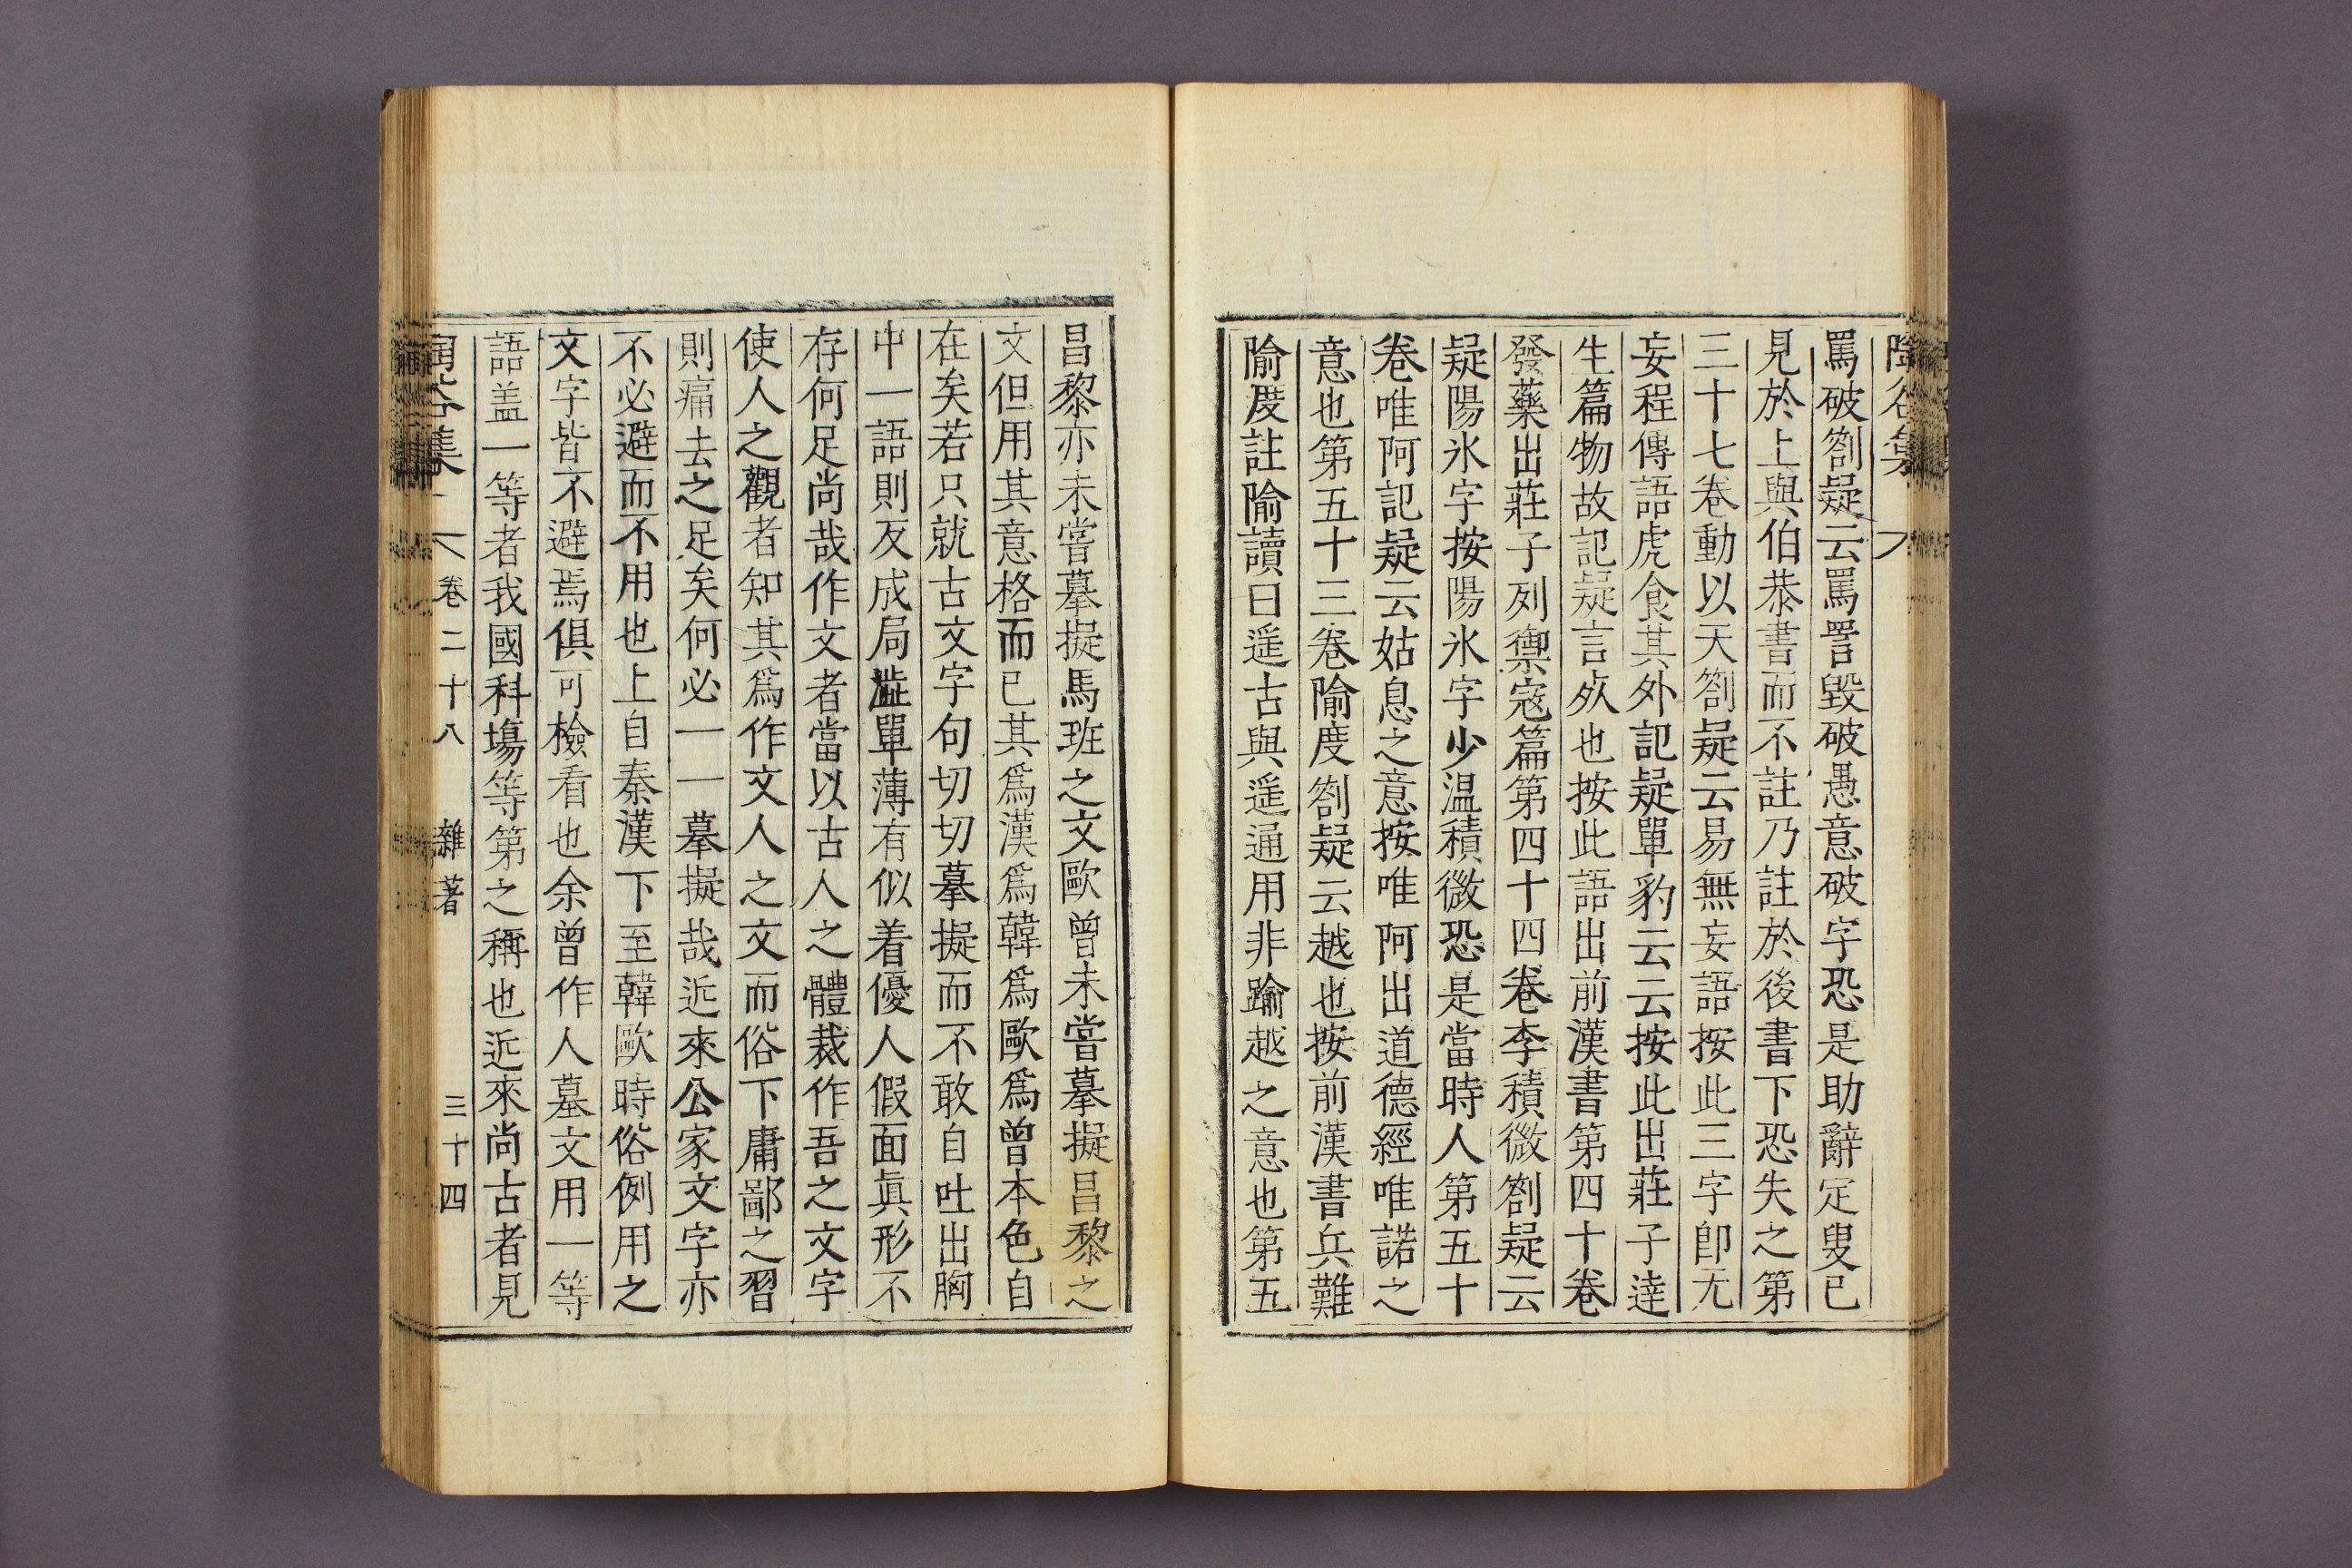 罵破劄疑云罵詈毀破愚意破字恐是助辭定叟已
見於上與伯恭書而不註乃註於後書下恐失之第
三十七卷動以天劄疑云易無妄語按此三字卽无
妄程傳語虎食其外記疑單豹云云按此出莊子達
生篇物故記疑言死也按此語出前漢書第四十卷
發藥出莊子列禦寇篇第四十四卷李積微劄疑云
疑陽氷字按陽氷字少温積微恐是當時人第五十
卷唯阿記疑云姑息之意按唯阿出道德經唯諾之
意也第五十三卷隃度劄疑云越也按前漢書兵難
隃度註隃讀曰遥古與遥通用非踰越之意也第五
昌黎亦未嘗摹擬馬班之文歐曾未嘗摹擬昌黎之
文但用其意格而已其爲漢爲韓爲歐爲曾本色自
在矣若只就古文字句切切摹擬而不敢自吐出胸
中一語則反成局澁單薄有似着優人假面眞形不
存何足尚哉作文者當以古人之體裁作吾之文字
使人之觀者知其爲作文人之文而俗下庸鄙之習
則痛去之足矣何必一一摹擬哉近來公家文字亦
不必避而不用也上自秦漢下至韓歐時俗例用之
文字皆不避焉俱可檢看也余曾作人墓文用一等
語盖一等者我國科塲等第之稱也近來尚古者見
卷二十八 雜著 三十四